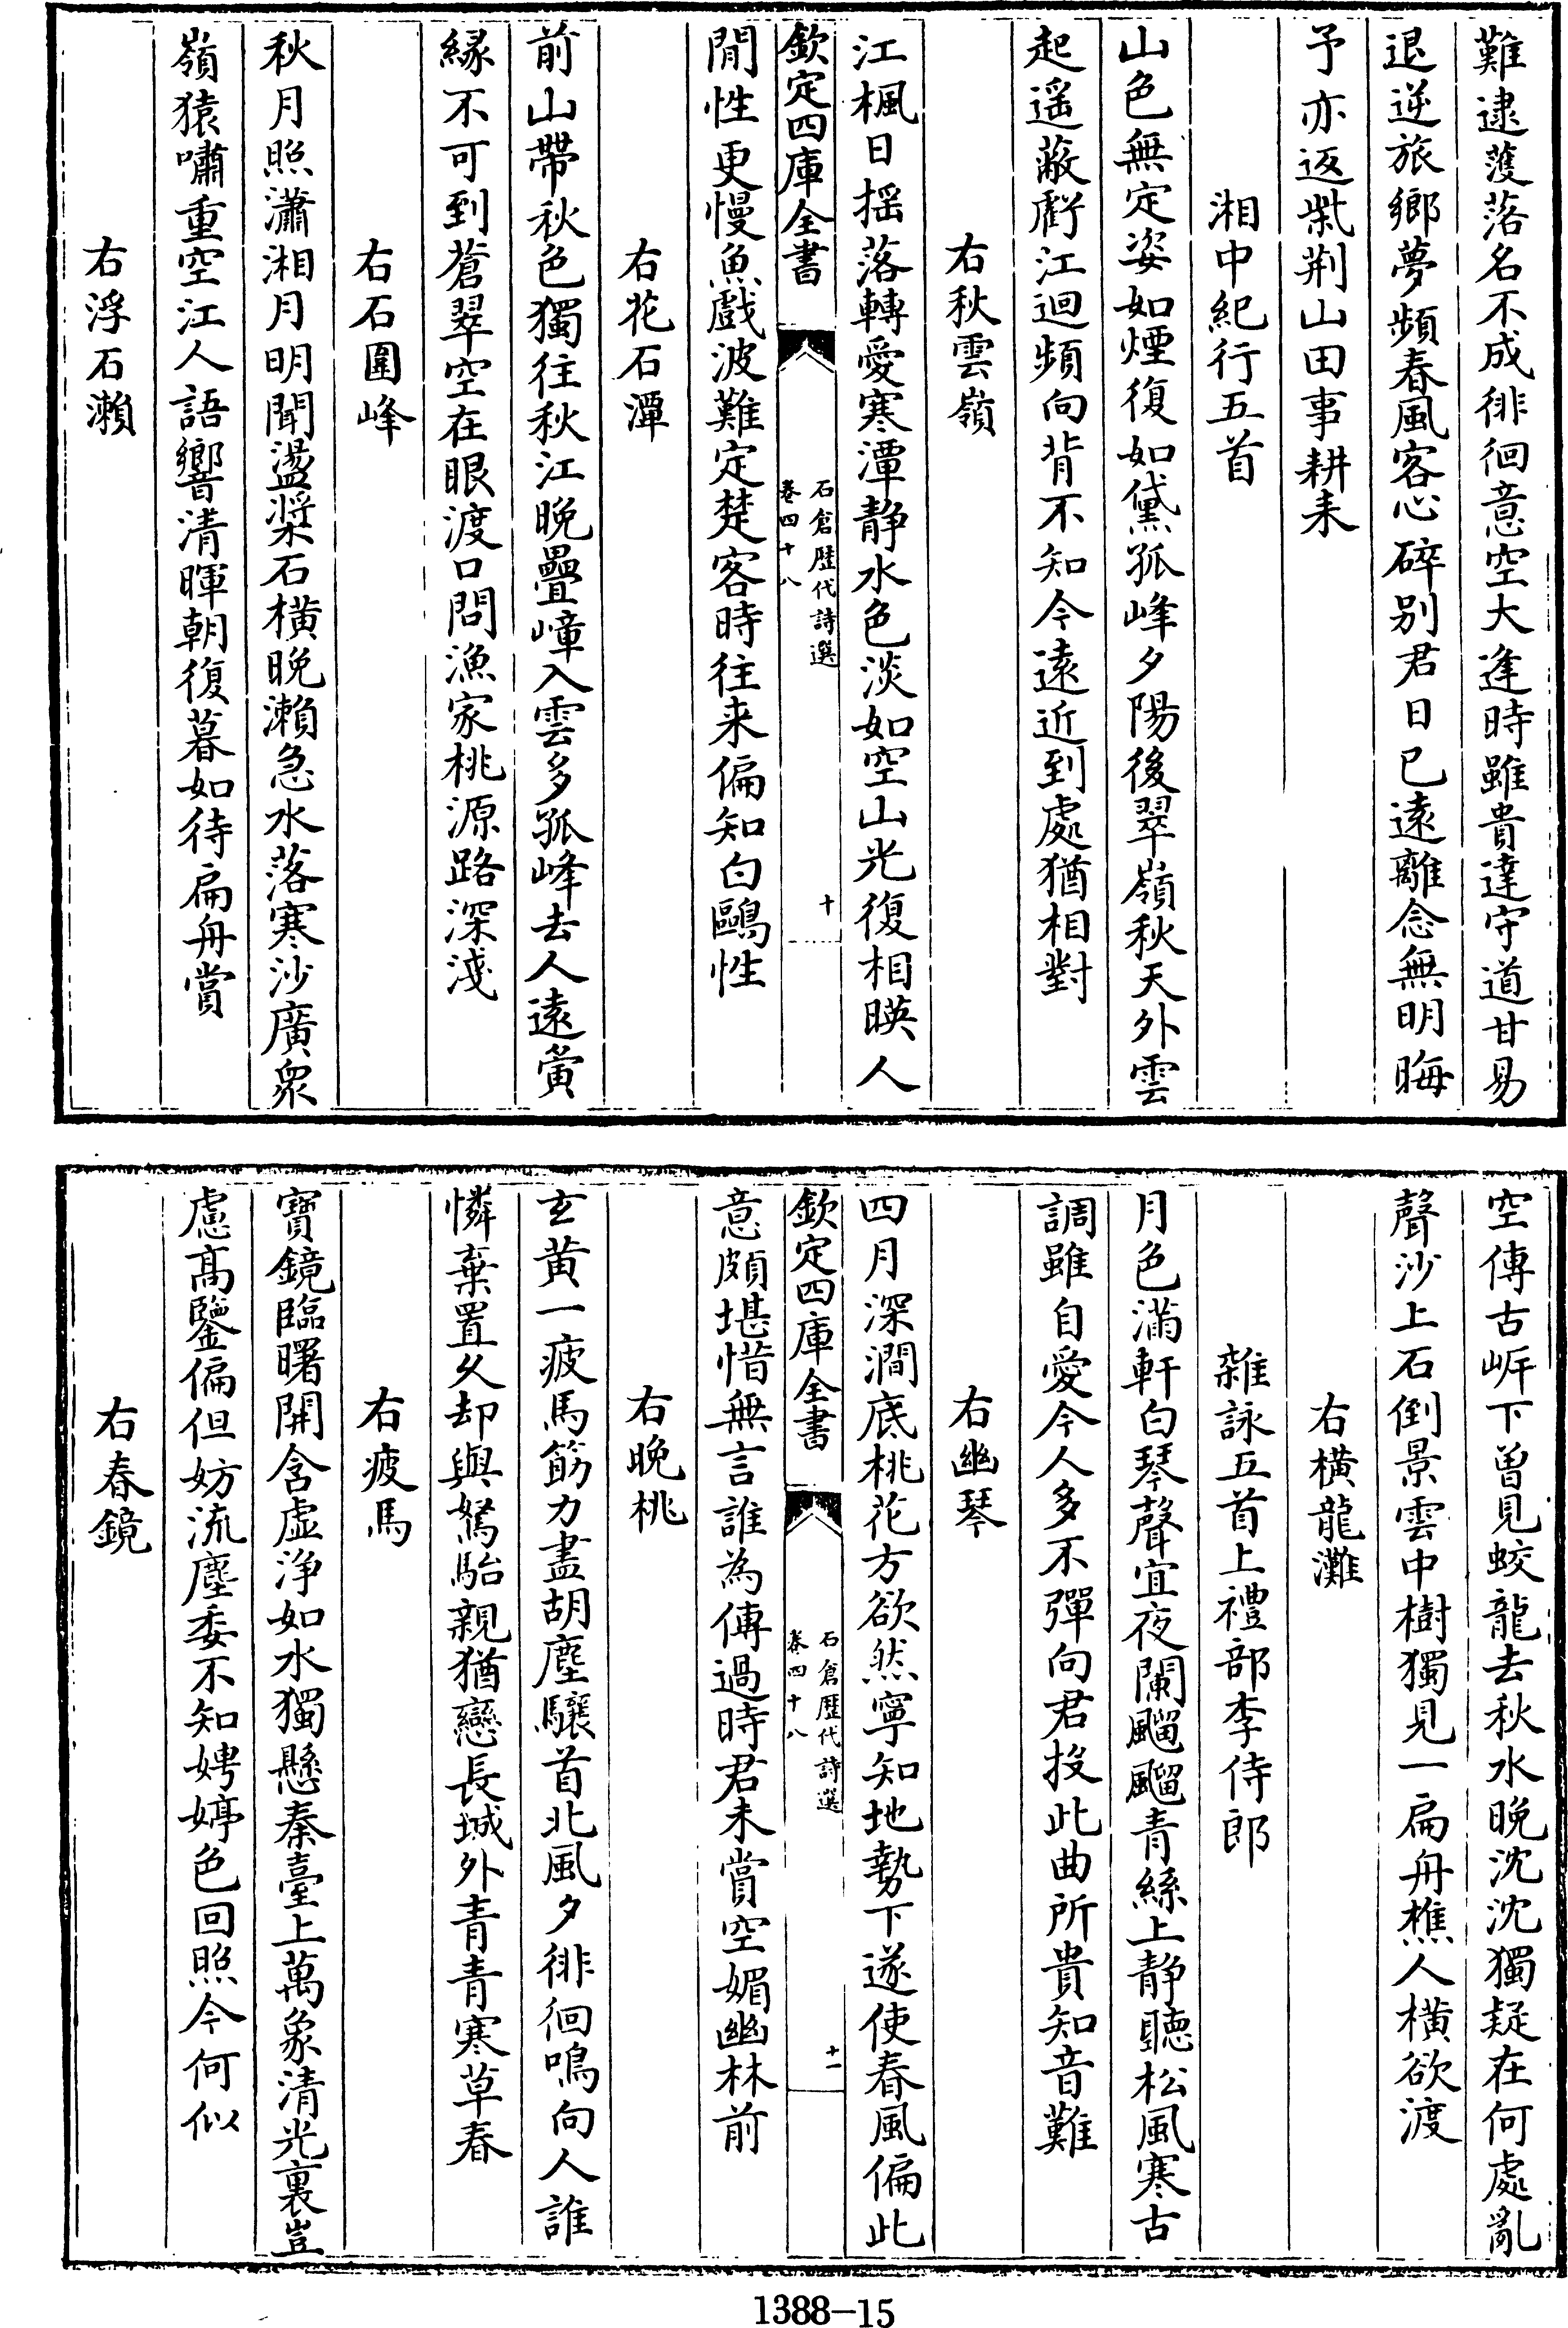 難逮蒦落名不成徘徊意空大逢時雖貴達守道甘易
退逆旅鄉夢頻春風客心碎别君日已遠離念無明晦
予亦返柴荆山田事耕耒
湘中紀行五首
山色無定姿如煙復如黛孤峰夕陽後翠嶺秋天外雲
起遥蔽虧江迴頻向背不知今遠近到處猶相對
右秋雲嶺
江楓日揺落轉愛寒潭静水色淡如空山光復相暎人
欽定四庫全書
石倉歴代詩選
卷四十八
十
閒性更慢魚戲波難定楚客時往来偏知白鷗性
右花石潭
前山帶秋色獨往秋江晚疊嶂入雲多孤峰去人遠夤
縁不可到蒼翠空在眼渡口問漁家桃源路深淺
右石圍峰
秋月照瀟湘月明聞盪槳石横晚瀨急水落寒沙廣衆
嶺猿嘯重空江人語響清暉朝復暮如待扁舟賞
右浮石瀨
空傳古岸下曽見蛟龍去秋水晚沈沈獨疑在何處亂
聲沙上石倒景雲中樹獨見一扁舟樵人横欲渡
右横龍灘
雜詠五首上禮部李侍郎
月色滿軒白琴聲宜夜闌飀飀青絲上静聽松風寒古
調雖自愛今人多不彈向君投此曲所貴知音難
右幽琴
四月深澗底桃花方欲然寧知地勢下遂使春風偏此
欽定四庫全書
石倉歴代詩選
卷四十八
十一
意頗堪惜無言誰為傳過時君未賞空媚幽林前
右晚桃
玄黄一疲馬筋力盡胡塵驤首北風夕徘徊鳴向人誰
憐棄置久却與駑駘親猶戀長城外青青寒草春
右疲馬
寶鏡臨曙開含虚浄如水獨懸秦臺上萬象清光裏豈
慮髙鑒偏但妨流塵委不知娉婷色回照今何似
右春鏡
1388-15